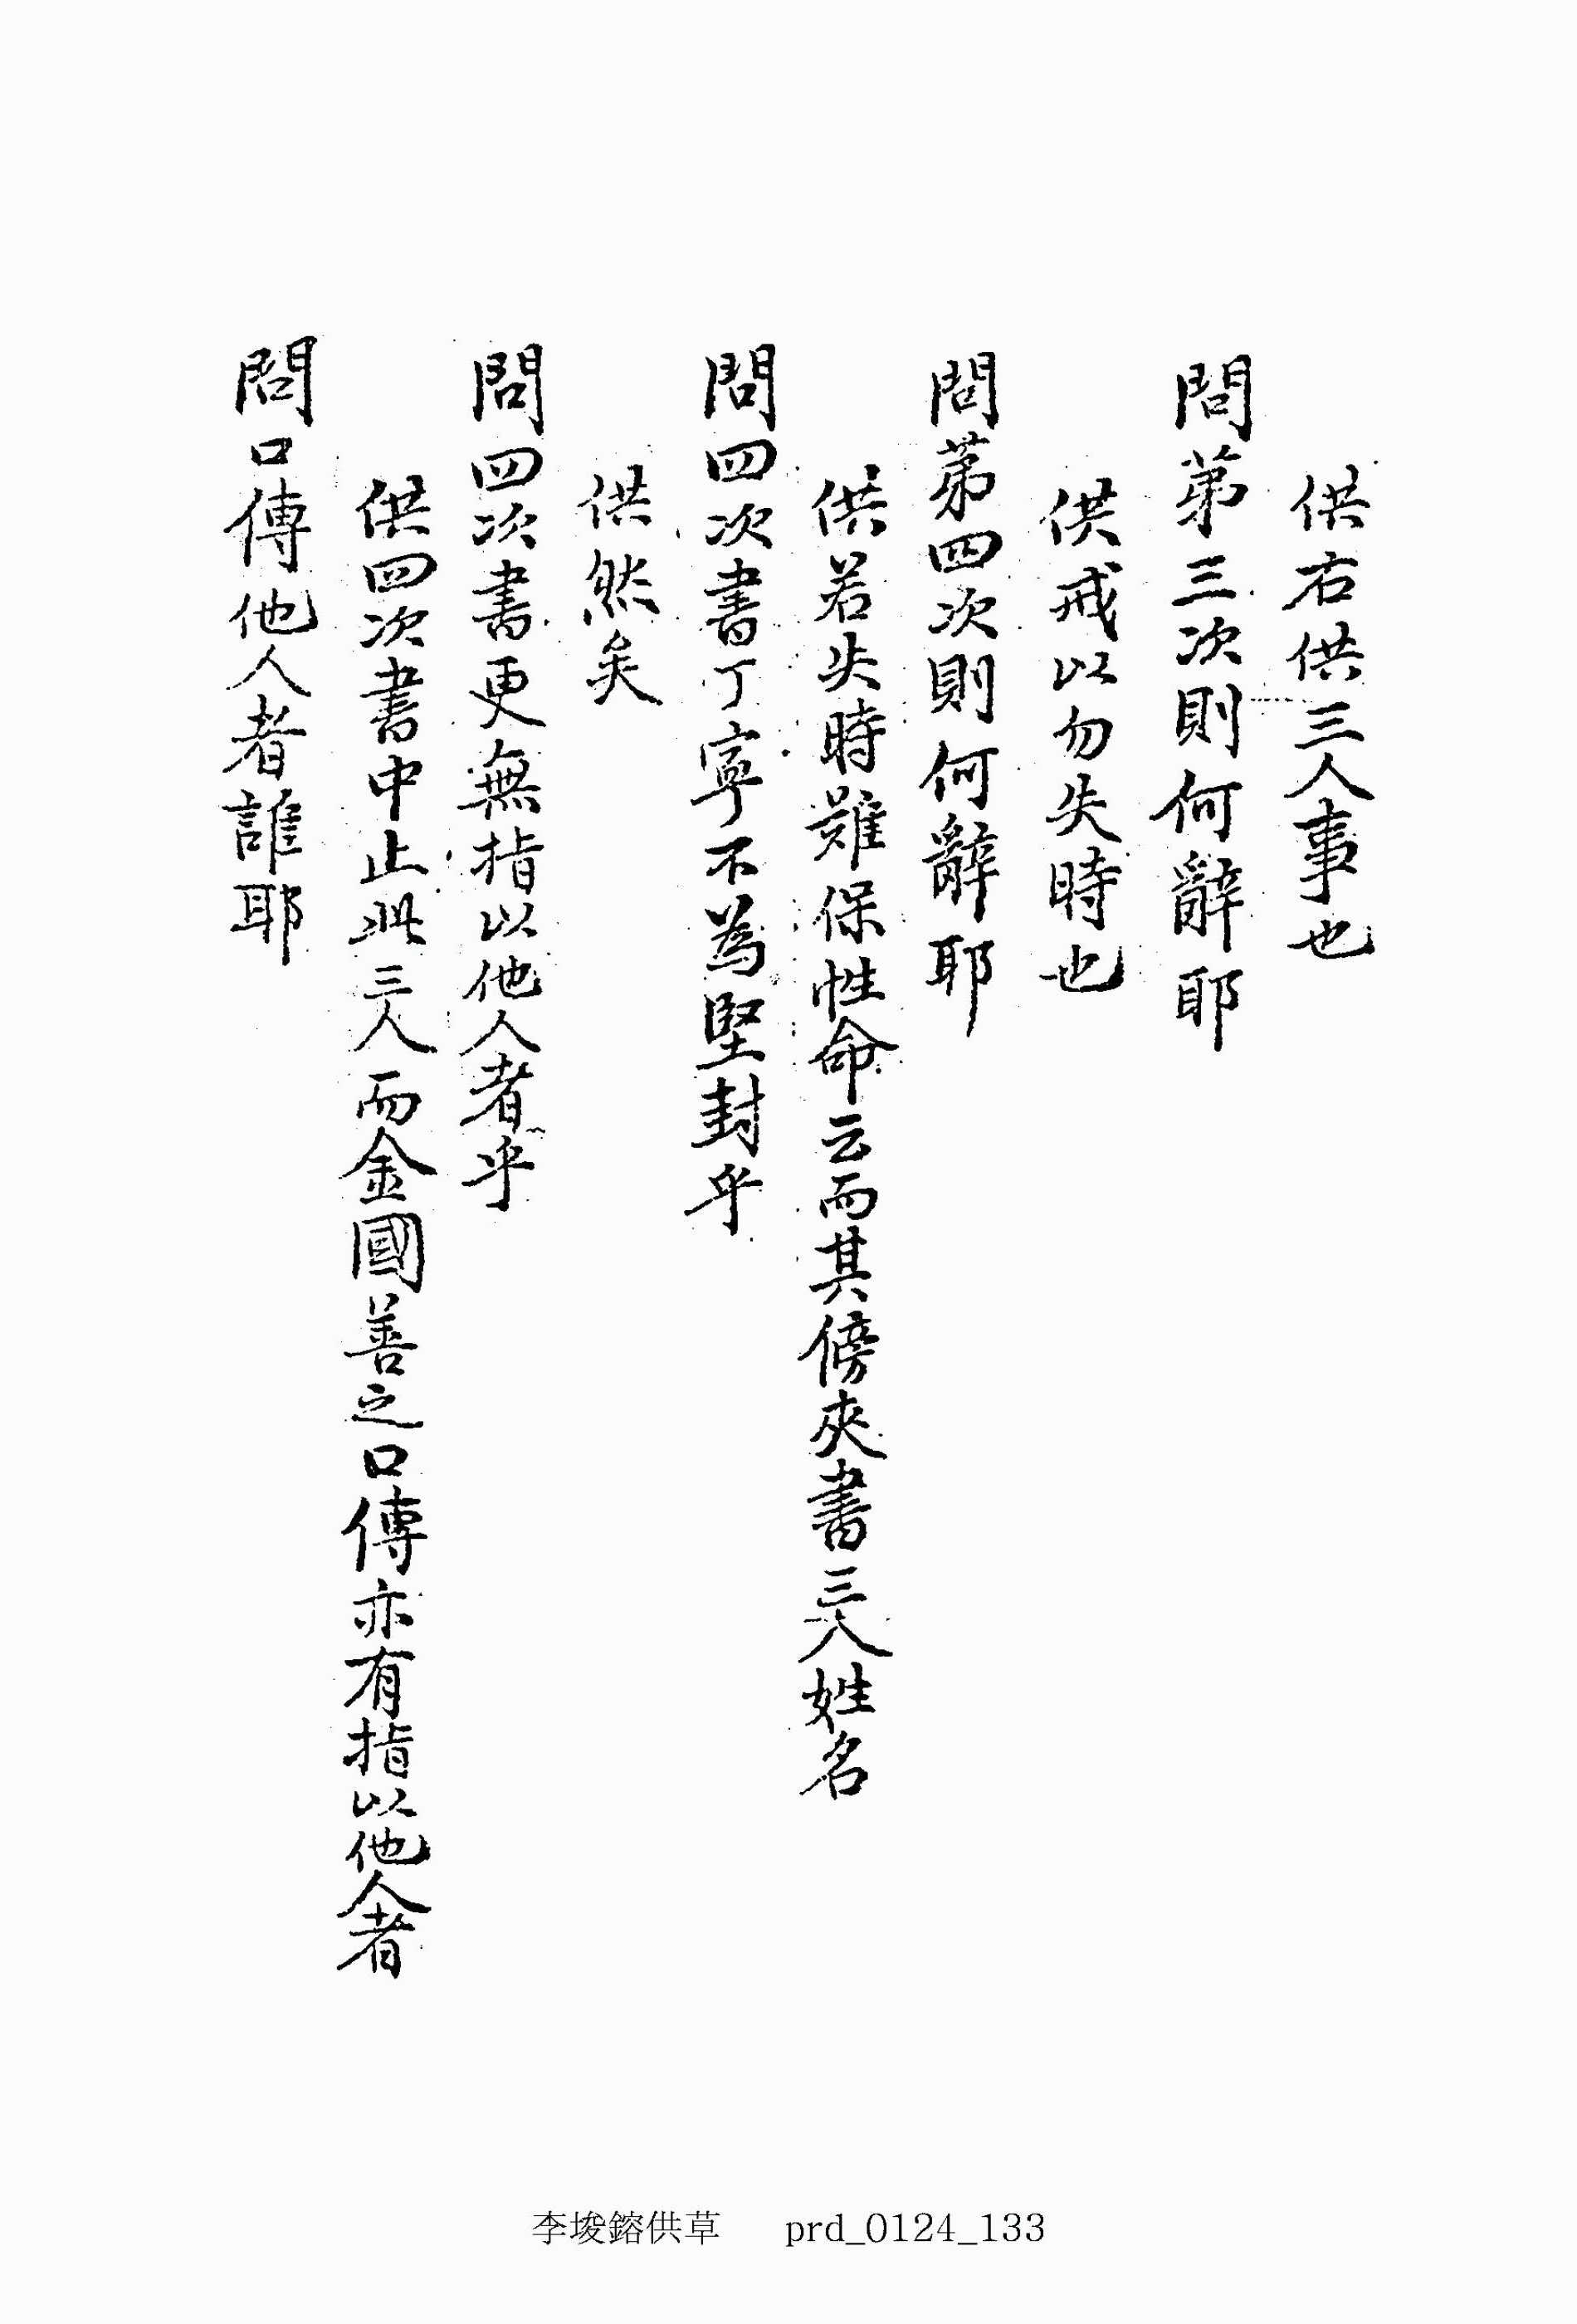 供右供三人事也
問第三次則何辭耶
供戒以勿失時也
問第四次則何辭耶
供若失時難保性命云而其傍夾書三人姓名
問四次書丁寧不為堅封乎
供然矣
問四次書更無指以他人者乎
供四次書中止此三人而金國善之口傳亦有指以他人者
問口傳他人者誰耶
李埈鎔供草 prd_0124_133